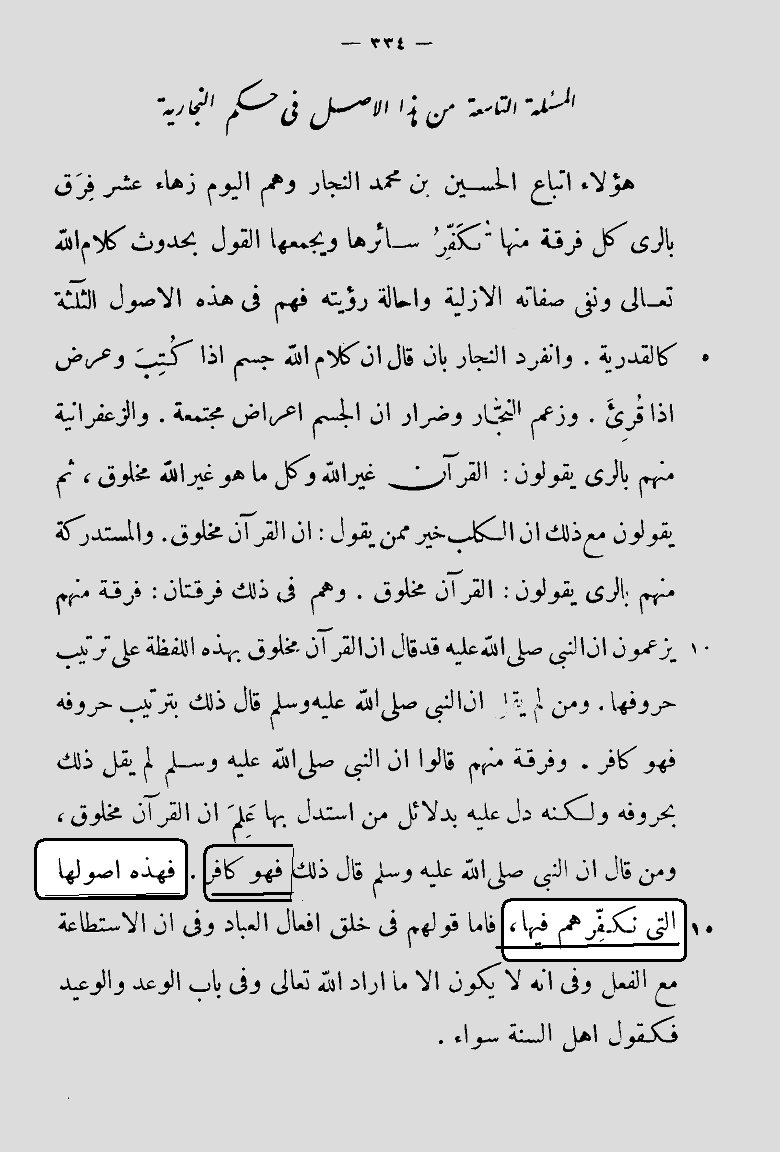 — ٣٣٤ —
المسئلة التاسعة من هذا الاصل فى حكم النجارية
هؤلاء اتباع الحسين بن محمد النجار وهم اليوم زهاء عشر فِرَق
بالرى كل فرقة منها تُكَفِّرُ سائرها ويجمعها القول بحدوث كلام الله
تعالى ونفى صفاته الازلية واحالة رؤيته فهم فى هذه الاصول الثلٰثة
كالقدرية . وانفرد النجار بان قال ان كلام الله جسم اذا كُتِبَ وعرض ٥
اذا قُرِئَ . وزعم النجّار وضرار ان الجسم اعراض مجتمعة . والزعفرانية
منهم بالرى يقولون : القرآن غير الله وكل ما هو غير الله مخلوق ، ثم
يقولون مع ذلك ان الكلب خير ممن يقول : ان القرآن مخلوق . والمستدركة
منهم بالرى يقولون : القرآن مخلوق . وهم فى ذلك فرقتان : فرقة منهم
يزعمون ان النبى صلى الله عليه قد قال ان القرآن مخلوق بهذه اللفظة على ترتيب ١٠
حروفها . ومن لم يقل ان النبى صلى الله عليه وسلم قال ذلك بترتيب حروفه
فهو كافر . وفرقة منهم قالوا ان النبى صلى الله عليه وسلم لم يقل ذلك
بحروفه ولكنه دل عليه بدلائل من استدل بها عَلِمَ ان القرآن مخلوق ،
ومن قال ان النبى صلى الله عليه وسلم قال ذلك فهو كافر . فهذه اصولها
التى نكفِّرهم فيها ، فاما قولهم فى خلق افعال العباد وفى ان الاستطاعة ١٥
مع الفعل وفى انه لا يكون الا ما اراد الله تعالى وفى باب الوعد والوعيد
فكقول اهل السنة سواء .